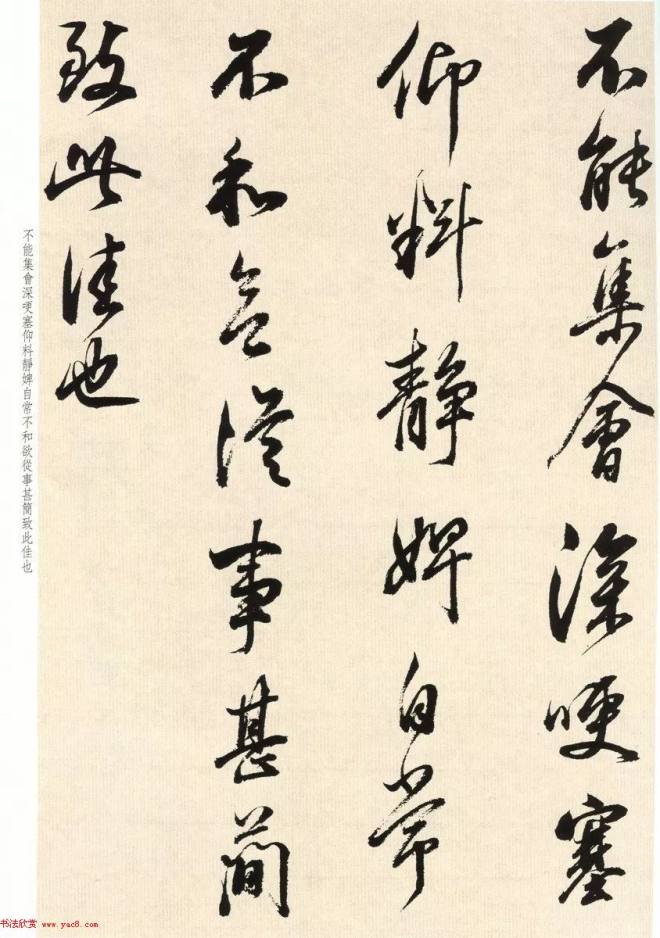 不能集會深哽塞
仰料靜婢自常
不和欲從事甚簡
致此佳也
不能集會深哽塞仰料靜婢自常不和欲從事甚簡致此佳也
书法欣赏 www.yac8.com